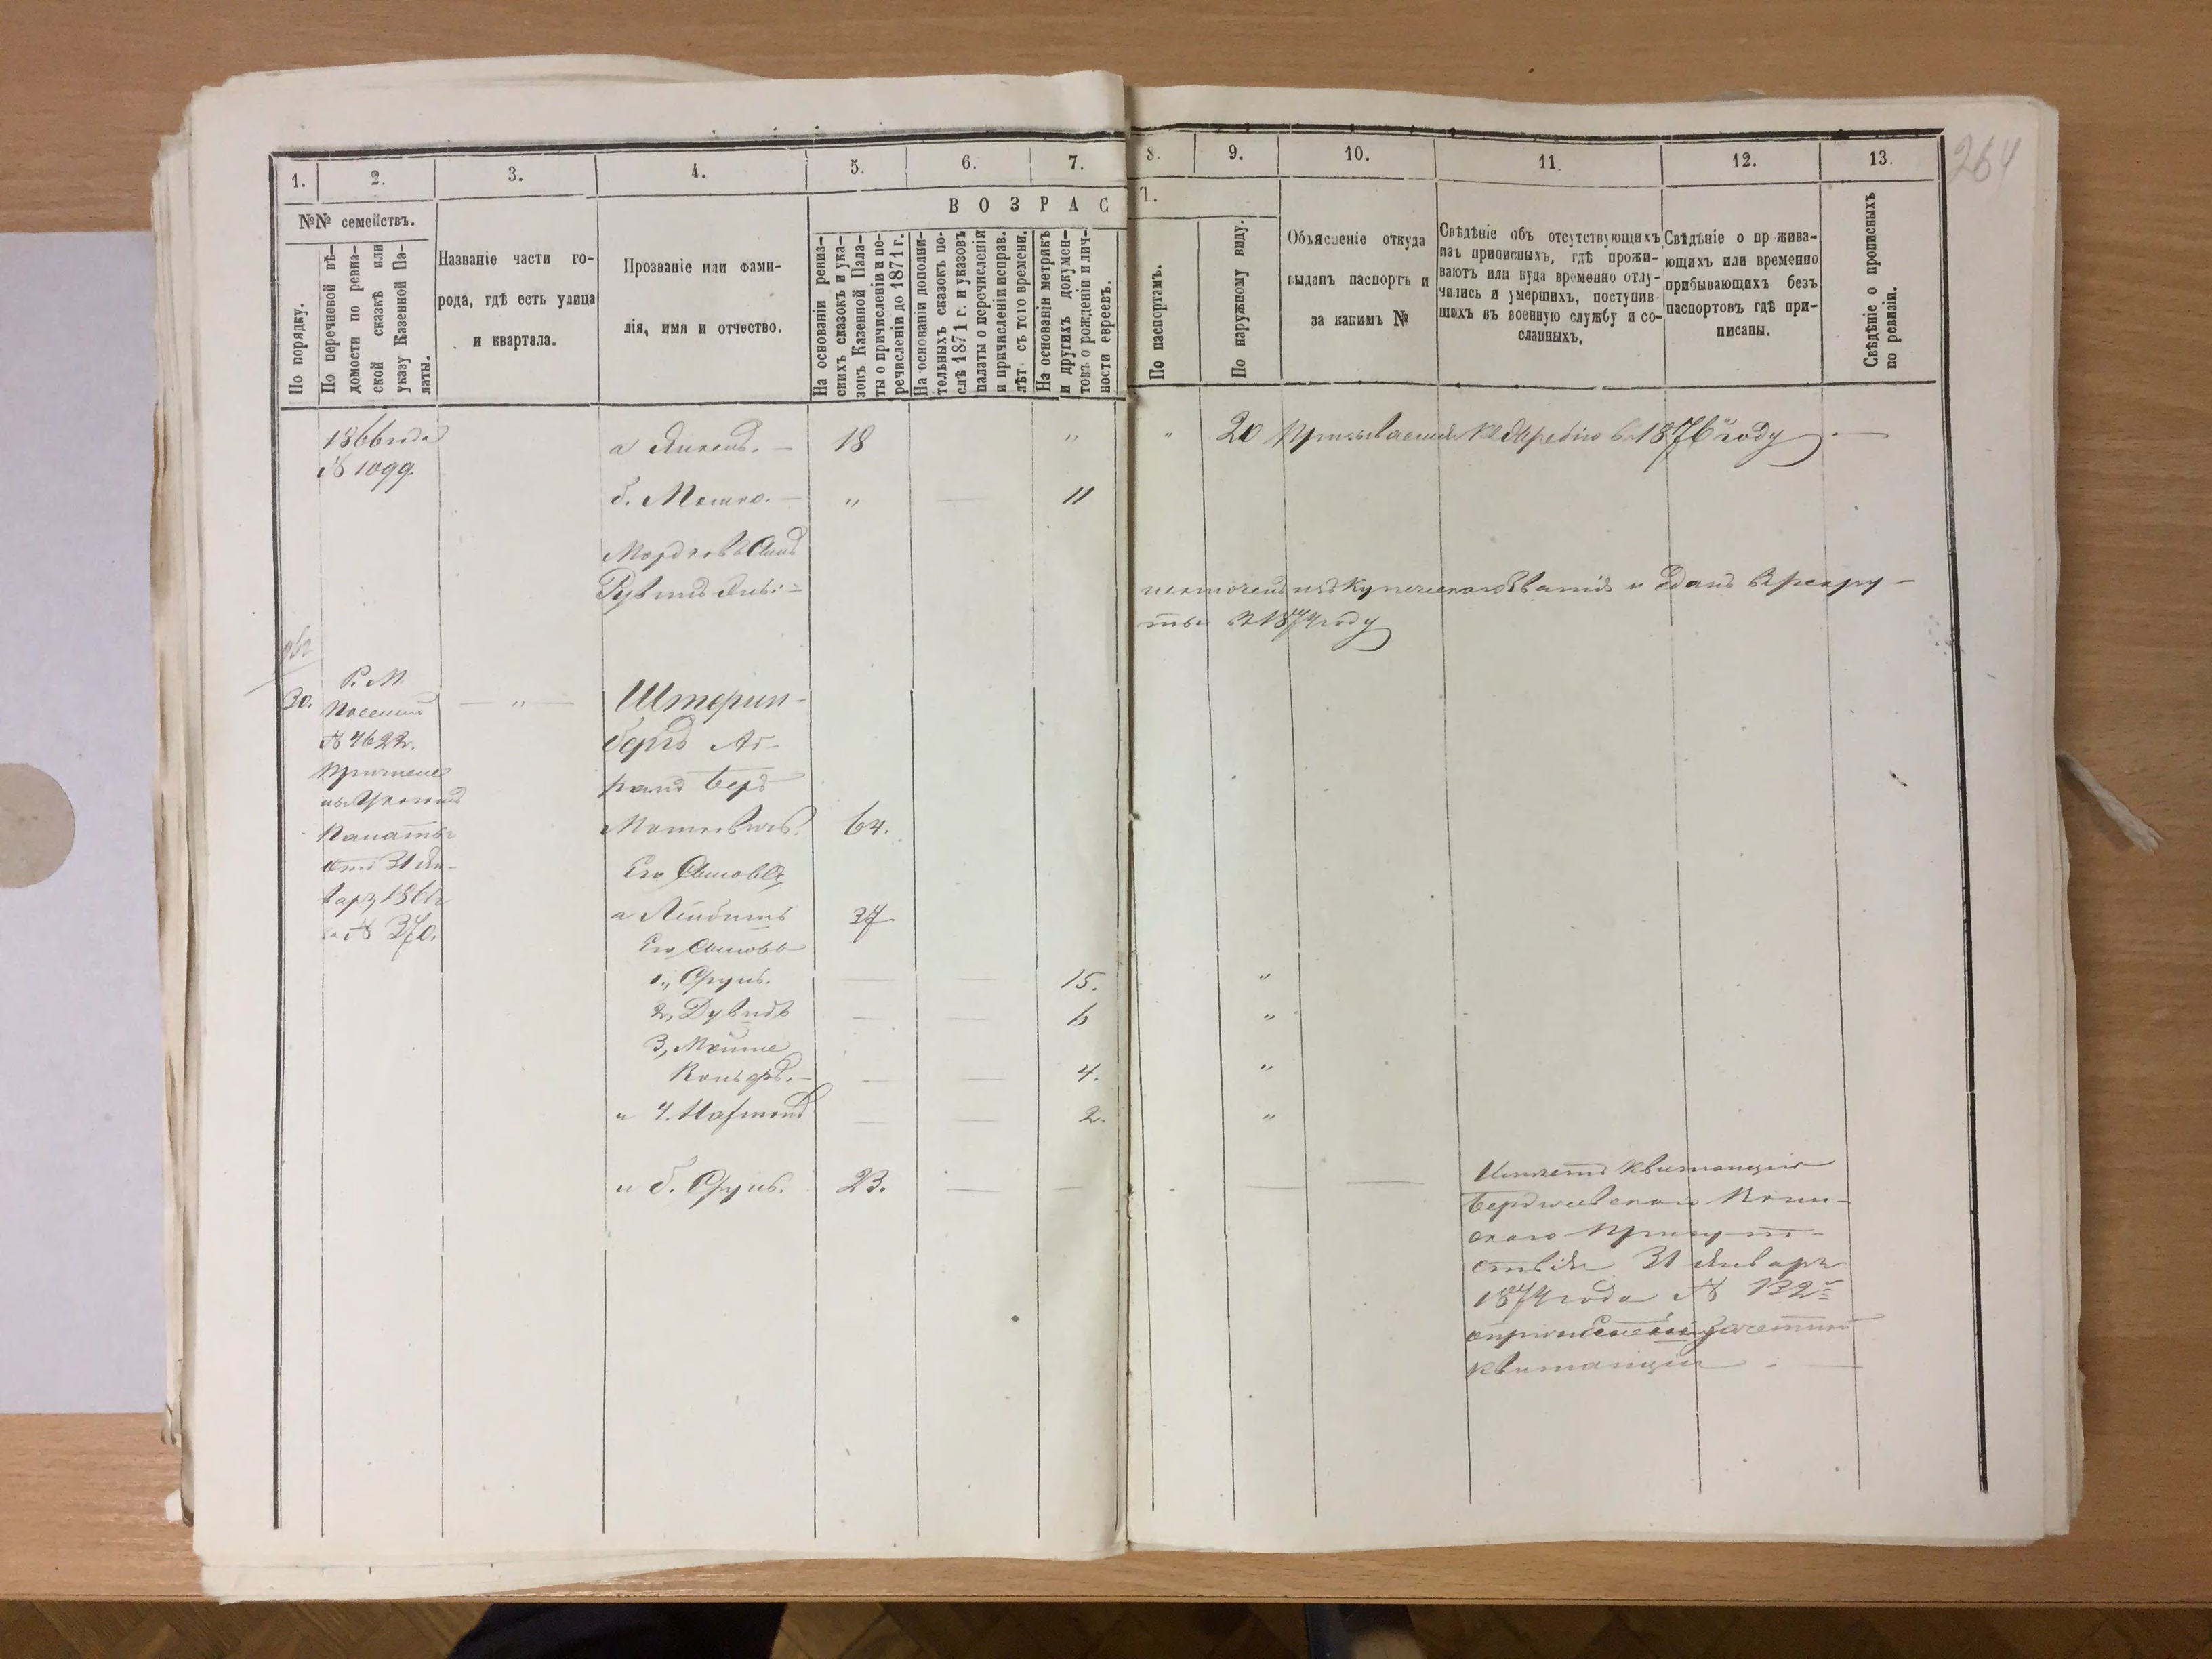 1.
2.
3.
4.
5.
6.
7.
8.
9.
10.
11.
12.
13.
264
№№ семействъ.
ВОЗРАС
Т.
По порядку.
По перечневой вѣ-
домости по ревиз-
ской сказкѣ или
указу Казенной Па-
латы.
Названіе части го-
рода, гдѣ есть улица
и квартала.
Прозваніе или фами-
лія, имя и отчество.
На основаніи ревиз-
скихъ сказокъ и ука-
зовъ Казенной Пала-
ты о причисленіи и пе-
речисленіи до 1871 г.
На основаніи дополни-
тельныхъ сказокъ по-
слѣ 1871 г. и указовъ
палаты о перечисленіи
и причисленіи исправ.
лѣт. съ того времени.
На основаніи метрикъ
и другихъ докумен-
товъ о рожденіи и лич-
ности евреевъ.
По паспортамъ.
По наружному виду.
Объясненіе откуда
выданъ паспортъ и
за какимъ №
Свѣдѣніе объ отсутствующихъ
изъ приписныхъ, гдѣ прожи-
ваютъ или куда временно отлу-
чились и умершихъ, поступив-
шихъ въ военную службу и со-
сланныхъ.
Свѣдѣніе о пр жива-
ющихъ или временно
прибывающихъ безъ
паспортовъ гдѣ при-
писаны.
Свѣдѣніе о прописныхъ
по ревизіи.
1866 года
а Янкель. — 18 " " 20
къ жребію въ 1876 году —
№ 1099.
б. Мошко. — " — 11
Мордковъ Сынъ
Рувинъ
и сданъ въ рекру-
ты въ 1874 году
Р. М.
30. — " — Штерин-
№ 4622.
бергъ Аб-
рамъ Беръ
Палаты
Мошковичъ. 64.
отъ 31 Ян-
Его Сыновья
варя
а Лейбишъ 37
за № 370.
Его Сыновья
1., Сруль. — — 15. "
2, Дувидъ — — 6 "
3, Мойше
— — 4. "
и 4. — — 2. "
и б. Сруль. 23. — — — —
Имѣетъ квитанцію
Бердичевскаго Воин-
скаго Присут-
ствія 31 Января
1874 года № 132
зачетной
квитанціи . —